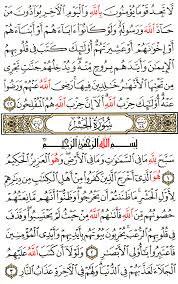 لَّا تَجِدُ قَوْمًا يُؤْمِنُونَ بِٱللَّهِ وَٱلْيَوْمِ ٱلْءَاخِرِ يُوَآدُّونَ مَنْ
حَآدَّ ٱللَّهَ وَرَسُولَهُۥ وَلَوْ كَانُوٓا۟ ءَابَآءَهُمْ أَوْ أَبْنَآءَهُمْ
أَوْ إِخْوَٰنَهُمْ أَوْ عَشِيرَتَهُمْ أُو۟لَٰٓئِكَ كَتَبَ فِى قُلُوبِهِمُ
ٱلْإِيمَٰنَ وَأَيَّدَهُم بِرُوحٍ مِّنْهُ وَيُدْخِلُهُمْ جَنَّٰتٍ تَجْرِى
مِن تَحْتِهَا ٱلْأَنْهَٰرُ خَٰلِدِينَ فِيهَا رَضِىَ ٱللَّهُ عَنْهُمْ وَرَضُوا۟
عَنْهُ أُو۟لَٰٓئِكَ حِزْبُ ٱللَّهِ أَلَآ إِنَّ حِزْبَ ٱللَّهِ هُمُ ٱلْمُفْلِحُونَ ٢٢
سُورَةُ ٱلْحَشْرِ
بِسْمِ ٱللَّهِ ٱلرَّحْمَٰنِ ٱلرَّحِيمِ
سَبَّحَ لِلَّهِ مَا فِى ٱلسَّمَٰوَٰتِ وَمَا فِى ٱلْأَرْضِ وَهُوَ ٱلْعَزِيزُ ٱلْحَكِيمُ
١ هُوَ ٱلَّذِىٓ أَخْرَجَ ٱلَّذِينَ كَفَرُوا۟ مِنْ أَهْلِ ٱلْكِتَٰبِ مِن دِيَٰرِهِمْ
لِأَوَّلِ ٱلْحَشْرِ مَا ظَنَنتُمْ أَن يَخْرُجُوا۟ وَظَنُّوٓا۟ أَنَّهُم مَّانِعَتُهُمْ
حُصُونُهُم مِّنَ ٱللَّهِ فَأَتَىٰهُمُ ٱللَّهُ مِنْ حَيْثُ لَمْ يَحْتَسِبُوا۟ وَقَذَفَ
فِى قُلُوبِهِمُ ٱلرُّعْبَ يُخْرِبُونَ بُيُوتَهُم بِأَيْدِيهِمْ وَأَيْدِى ٱلْمُؤْمِنِينَ
فَٱعْتَبِرُوا۟ يَٰٓأُو۟لِى ٱلْأَبْصَٰرِ ٢ وَلَوْلَآ أَن كَتَبَ ٱللَّهُ عَلَيْهِمُ
ٱلْجَلَآءَ لَعَذَّبَهُمْ فِى ٱلدُّنْيَا وَلَهُمْ فِى ٱلْءَاخِرَةِ عَذَابُ ٱلنَّارِ ٣